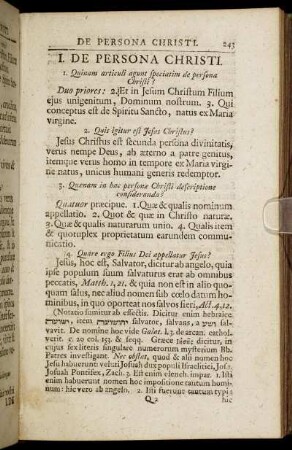 DE PERSONA CHRISTI. 243
I. DE PERSONA CHRISTI.
1. Quinam articuli agunt speciatim de persona
Christi?
Duo priores: 2. Et in Jesum Christum Filium
ejus unigenitum, Dominum nostrum. 3. Qui
conceptus est de Spiritu Sancto, natus ex Maria
virgine.
2. Quis igitur est Jesus Christus?
Jesus Christus est secunda persona divinitatis,
verus nempe Deus, ab æterno a patre genitus,
itemque verus homo in tempore ex Maria virgine
natus, unicus humani generis redemptor.
3. Quænam in hac persona Christi descriptione
consideranda?
Quatuor præcipue. 1. Quæ & qualis nominum
appellatio. 2. Quot & quæ in Christo naturæ.
3. Quæ & qualis naturarum unio. 4. Qualis item
& quotuplex proprietatum earundem commu-
nicatio.
4. Quare ergo Filius Dei appellatur Jesus?
Jesus, hoc est, Salvator, dicitur ab angelo, quia
ipse populum suum salvaturus erat ab omnibus
peccatis, Matth. 1, 21. & quia non est in alio quo-
quam salus, nec aliud nomen sub cœlo datum ho-
minibus, in quo oporteat nos salvos fieri, Act. 4, 12.
(Notatio sumitur ab effectu. Dicitur enim hebraice
item salvator, salvans, a sal-
vavit. De nomine hoc vide Galat. l. 3. de arcan. cathol.
verit. c. 20 col. 153. & seqq. Græce dicitur, in
cujus sex literis singulare numerorum mysterium Bb.
Patres investigant. Nec obstat, quod & alii nomen hoc
Jesu habuerunt veluti Josuah dux populi Israelitici, Jos. 1.
Josuah Pontifex, Zach. 3. Est enim elench. impar. 1. Isti
enim habuerunt nomen hoc impositione tantum homi-
num: hic vero ab angelo. 2. Isti fuerunt tantum typi:
Q 2 hic